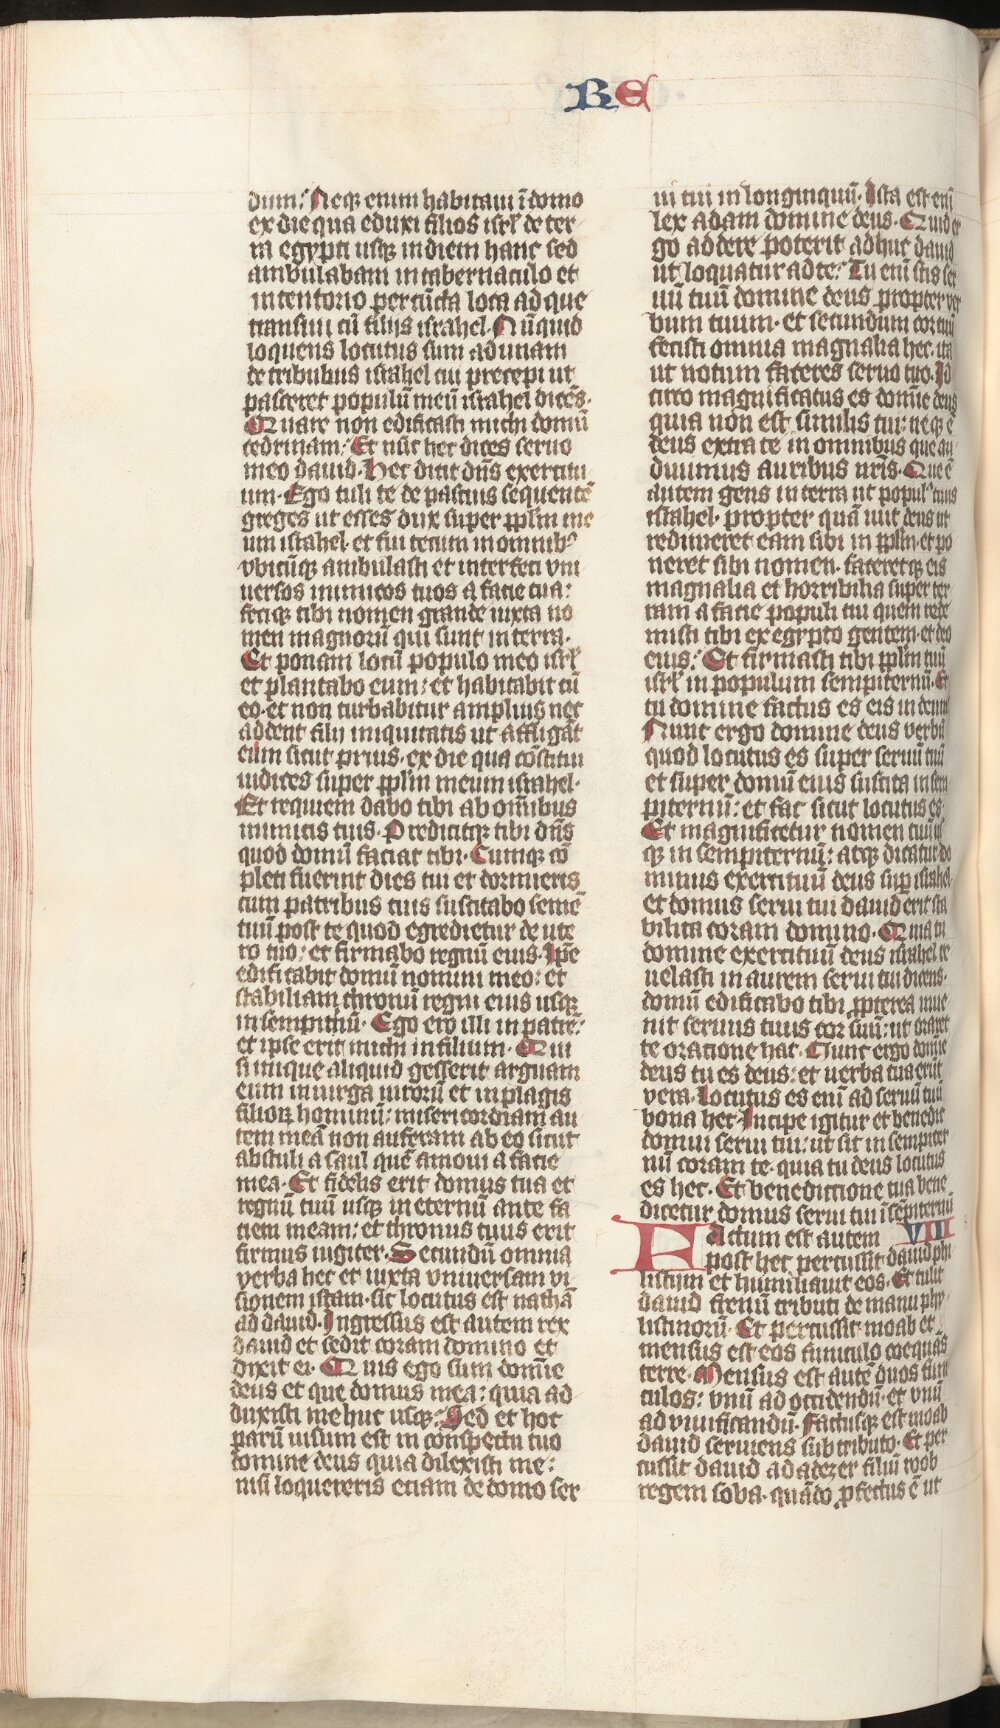 RE
dum: Neq; enim habitaui ī domo
ex die qua eduxi filios isrl̄ de ter
ra egypti usq; in diem hanc sed
ambulabam in tabernaculo et
in tentorio per cūcta loca ad que
transiui cū filijs israhel. Nūquid
loquens locutus sum ad unam
de tribubus israhel cui precepi ut
pasceret populū meū israhel dicēs.
Quare non edificasti michi domū
cedrinam: Et nūc hec dices seruo
meo dauid. Hec dicit dn̄s exercitu
um. Ego tuli te de pascuis sequentē
greges ut esses dux super pplm̄ me
um israhel. et fui tecum in omnibꝰ
vbicūq; ambulasti et interfeci vni
uersos inimicos tuos a facie tua:
feciq; tibi nomen grande iuxta no
men magnorū qui sunt in terra.
Et ponam locū populo meo isrl̄
et plantabo eum: et habitabit cū
eo. et non turbabitur amplius nec
addent filii iniquitatis ut affligāt
eum sicut prius. ex die qua cōstitui
iudices super pplm̄ meum israhel.
Et requiem dabo tibi ab om̄ibus
inimicis tuis. Predicitq; tibi dn̄s
quod domū faciat tibi. Cumq; cō
pleti fuerint dies tui et dormieris
cum patribus tuis suscitabo semē
tuū post te quod egredietur de ute
ro tuo: et firmabo regnū eius. Ip̄e
edificabit domū nomini meo: et
stabiliam thronū regni eius usq;
in sempit̄nū. Ego ero illi in patrē:
et ipse erit michi in filium. Qui
si inique aliquid gesserit arguam
eum in uirga uirorū et in plagis
filioꝝ hominū: misericordiam au
tem meā non auferam ab eo sicut
abstuli a saul quē amoui a facie
mea. Et fidelis erit domus tua et
regnū tuū usq; in eternū ante fa
ciem meam: et thronus tuus erit
firmus iugiter. Secundū omnia
verba hec et iuxta vniuersam vi
sionem istam. sic locutus est nathā
ad dauid. Ingressus est autem rex
dauid et sedit coram domino et
dixit ei. Quis ego sum domīe
deus et que domus mea: quia ad
duxisti me huc usq;: Sed et hoc
parū uisum est in conspectu tuo
domine deus quia dilexisti me:
nisi loquereris etiam de domo ser
ui tui in longinquū. Ista est enī
lex adam domine deus. Quid er
go addere poterit adhuc dauid
ut loquatur ad te: Tu enī scis ser
uū tuū domine deus propter ver
bum tuum. et secundum cor tuū
fecisti omnia magnalia hec. ita
ut notum faceres seruo tuo. Id
circo magnificatus es domīe deus
quia non est similis tui: neq; ē
deus extra te in omnibus que au
diuimus auribus nr̄is. Que ē
autem gens in terra ut populꝰ tuus
israhel. propter quā iuit deus ut
redimeret eam sibi in pplm̄. et po
neret sibi nomen. faceretq; eis
magnalia et horribilia super ter
ram a facie populi tui quem rede
misti tibi ex egypto gentem. et deū
eius: Et firmasti tibi pplm̄ tuū
isrl̄ in populum sempiternū. Et
tu domine factus es eis in deum
Nunc ergo domine deus verbū
quod locutus es super seruū tuū
et super domū eius suscita in sem
piternū: et fac sicut locutus es.
Et magnificetur nomen tuū us
q; in sempiternū: atq; dicatur do
minus exercituū deus sup israhel.
et domus serui tui dauid erit sta
bilita coram domino. Quia tu
domine exercituū deus israhel re
uelasti in aurem serui tui dicens.
domū edificabo tibi ꝓpterea inue
nit seruus tuus cor suū: ut oraret
te oratione hac. Nunc ergo domīe
deus tu es deus: et verba tua erūt
vera. Locutus es enī ad seruū tuū
bona hec. Incipe igitur et benedic
domui serui tui: ut sit in sempiter
nū coram te. quia tu deus locutus
es hec. Et benedictione tua bene
dicetur domus serui tui ī sēpiternū
Factum est autem VIII
post hec percussit dauid phi
listim et humiliauit eos. Et tulit
dauid frenū tributi de manu phy
listinorū. Et percussit moab et
mensus est eos funiculo coequās
terre. Mensus est autē duos funi
culos: vnū ad occidendū. et vnū
ad viuificandū. Factusq; est moab
dauid seruiens sub tributo. Et per
cussit dauid adadezer filiū roob
regem soba. quādo ꝓfectus ē ut